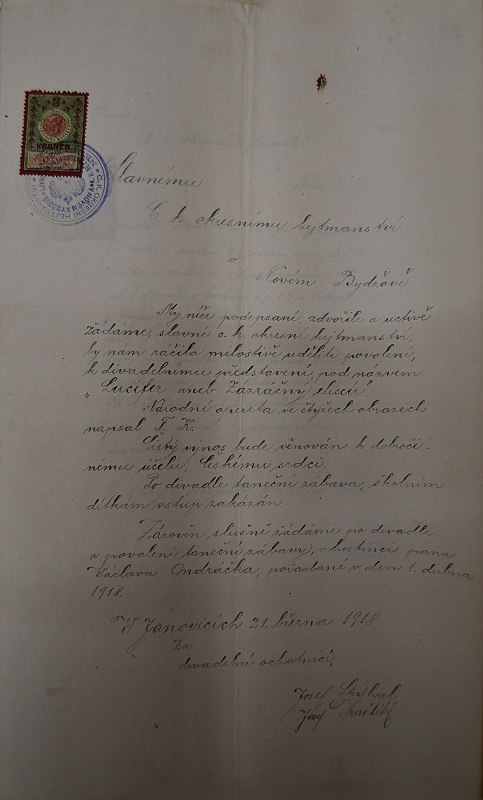 3
KRONEN
Slavnému
C. k. okresnímu hejtmanství
v Novém Bydžově
My níže podepsaní zdvořile a uctivě
žádáme, slavné c. k. okresní hejtmanství,
by nám ráčilo milostivě uděliti povolení,
k divadelnímu představení, pod názvem
„Lucifer aneb Zázračný elixír"
Národní opereta ve čtyřech obrazech
napsal F. K.
Čistý výnos bude věnován k dobroči-
nému účelu, Českému srdci.
Po divadle taneční zábava, školním
dítkám vstup zakázán
Zároveň slušně žádáme po divadle
o povolení taneční zábavy, v hostinci pana
Václava Ondráčka, pořádané v den 1. dubna
1918.
V Janovicích 21. března 1918
Za
divadelní ochotníci,
Josef
Josef